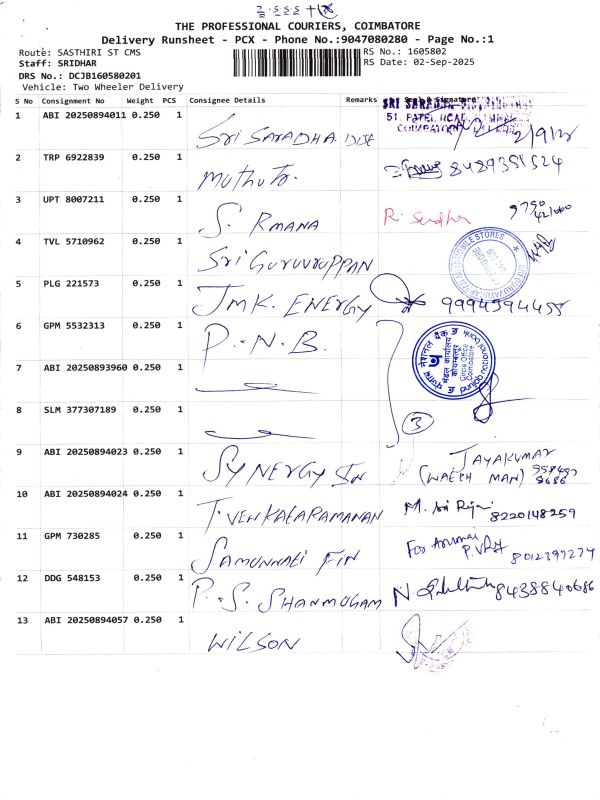 THE PROFESSIONAL COURIERS, COIMBATORE
Delivery Runsheet - PCX - Phone No.:9047080280 - Page No.:1
Route: SASTHIRI ST CMS
RS No.: 1605802
Staff: SRIDHAR
RS Date: 02-Sep-2025
DRS No.: DCJB160580201
Vehicle: Two Wheeler Delivery
S No Consignment No Weight PCS Consignee Details Remarks Signature
1 ABI 20250894011 0.250 1 Sri SARADHA
51, PATEL ROAD,
COIMBATORE
2 TRP 6922839 0.250 1 Muthu Tr.
3 UPT 8007211 0.250 1 S. RMANA
4 TVL 5710962 0.250 1 Sri GURUVRUPPAN
5 PLG 221573 0.250 1 JMK. ENERGY 9994394455
6 GPM 5532313 0.250 1 P.N.B.
पंजाब नैशनल बैंक
मंडल कार्यालय
कोयम्बत्तूर
Circle Office
Coimbatore
punjab national bank
7 ABI 20250893960 0.250 1
8 SLM 377307189 0.250 1
3
9 ABI 20250894023 0.250 1 SYNERGY IN JAYAKUMAR
(WATCH MAN)
10 ABI 20250894024 0.250 1 T. VENKATARAMANAN 8220148259
11 GPM 730285 0.250 1 SAMUNNATI FIN For
8012397274
12 DDG 548153 0.250 1 P.S. SHANMUGAM 8438840686
13 ABI 20250894057 0.250 1 WILSON